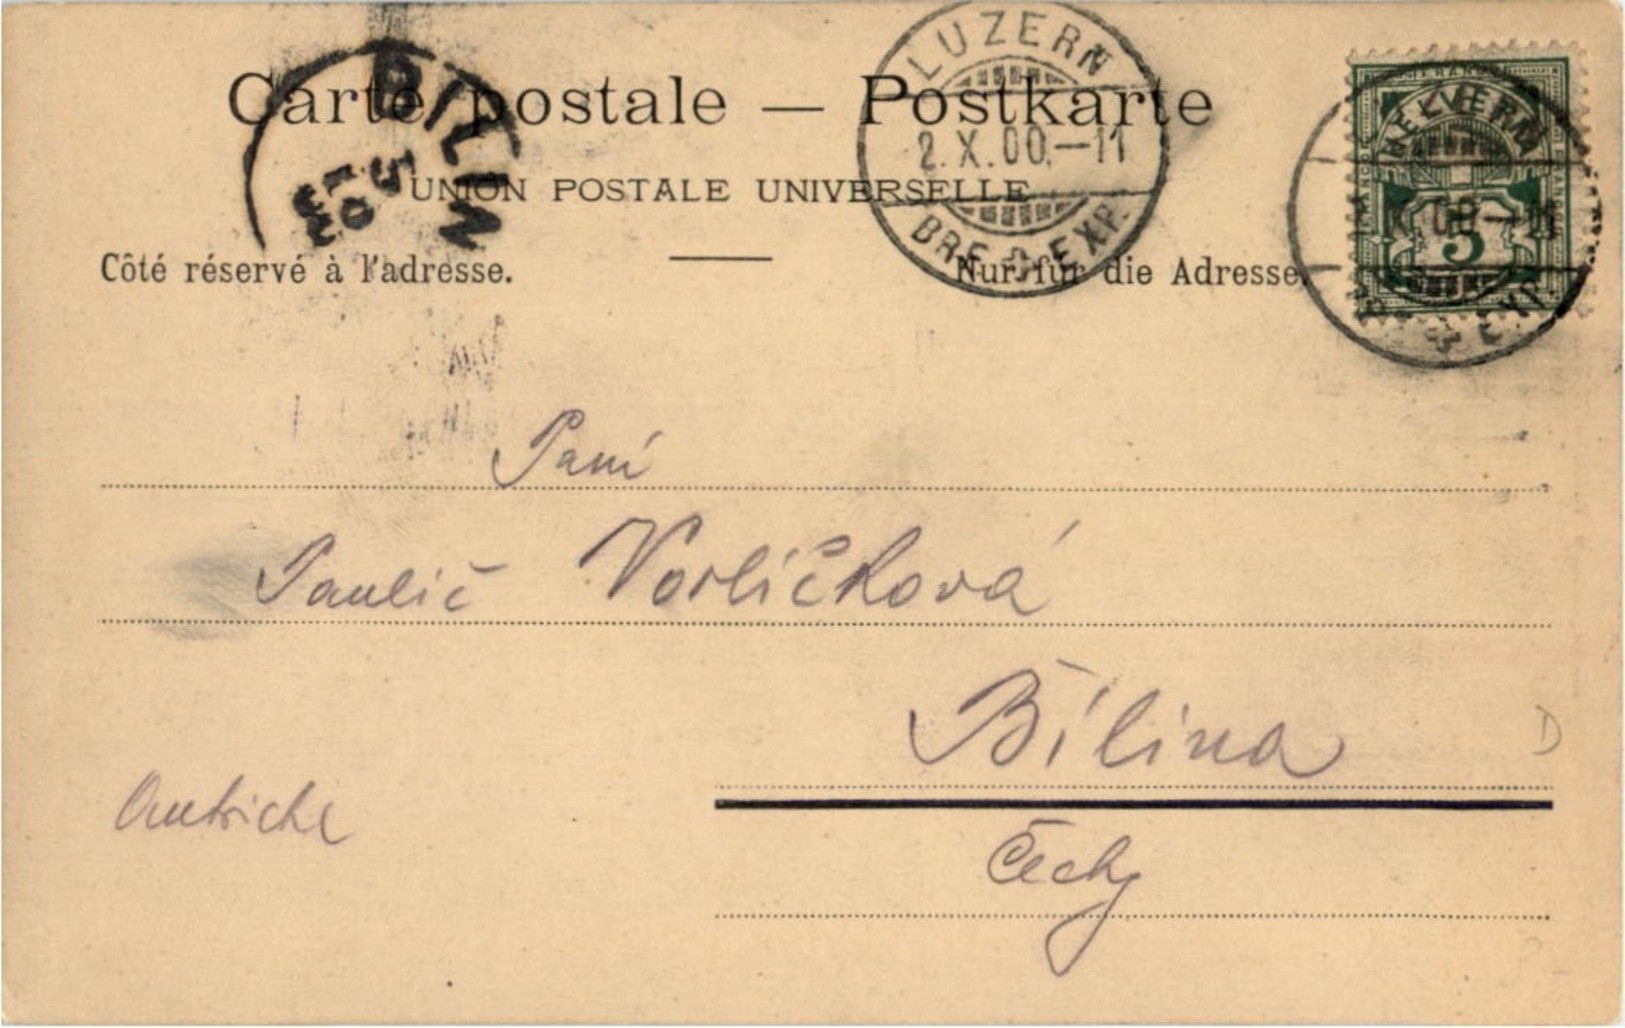 Carte postale — Postkarte
UNION POSTALE UNIVERSELLE
Côté réservé à l'adresse.
Nur für die Adresse.
BILIN
5 10
LUZERN
2.X.00.—11
BRF. EXP.
LUZERN
X.00—11
EXP.
HELVETIA
FRANCO
5
Paní
Paulič Vorlíčková
Bílina
Autriche
Čechy
D